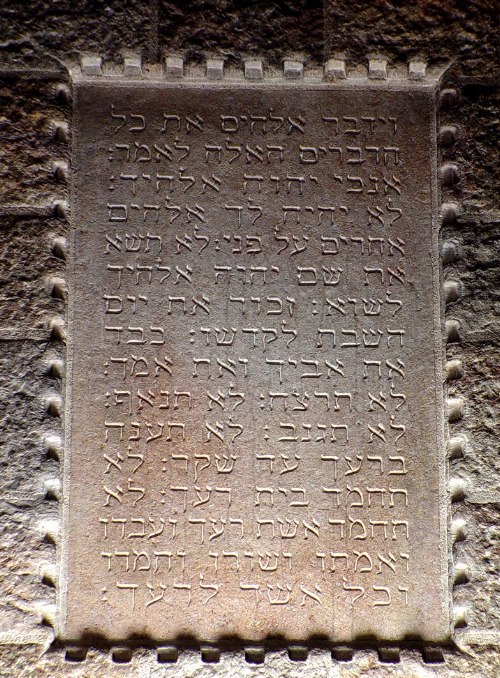 וידבר אלהים את כל
הדברים האלה לאמר:
אנכי יהוה אלהיך:
לא יהיה לך אלהים
אחרים על פני: לא תשא
את שם יהוה אלהיך
לשוא: זכור את יום
השבת לקדשו: כבד
את אביך ואת אמך:
לא תרצח: לא תנאף:
לא תגנב: לא תענה
ברעך עד שקר: לא
תחמד בית רעך: לא
תחמד אשת רעך ועבדו
ואמתו ושורו וחמרו
וכל אשר לרעך: